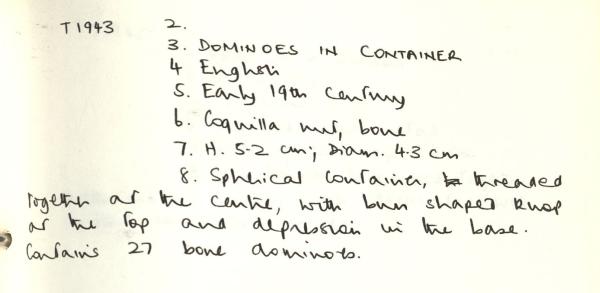 T1943 2.
3. DOMINOES IN CONTAINER
4 English
5. Early 19th century
6. Coquilla nut, bone
7. H. 5.2 cm; Diam. 4.3 cm
8. Spherical container, threaded
together at the centre, with bun shaped knop
at the top and depression in the base.
Contains 27 bone dominoes.